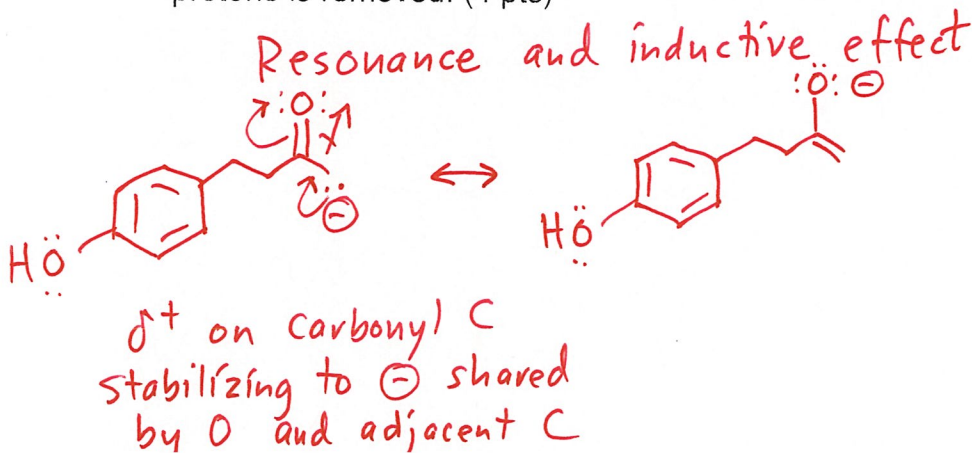 Resonance and inductive effect
:Ö: ⊖
:O:
⊖
HÖ
HÖ
δ+ on carbonyl C
stabilizing to ⊖ shared
by O and adjacent C